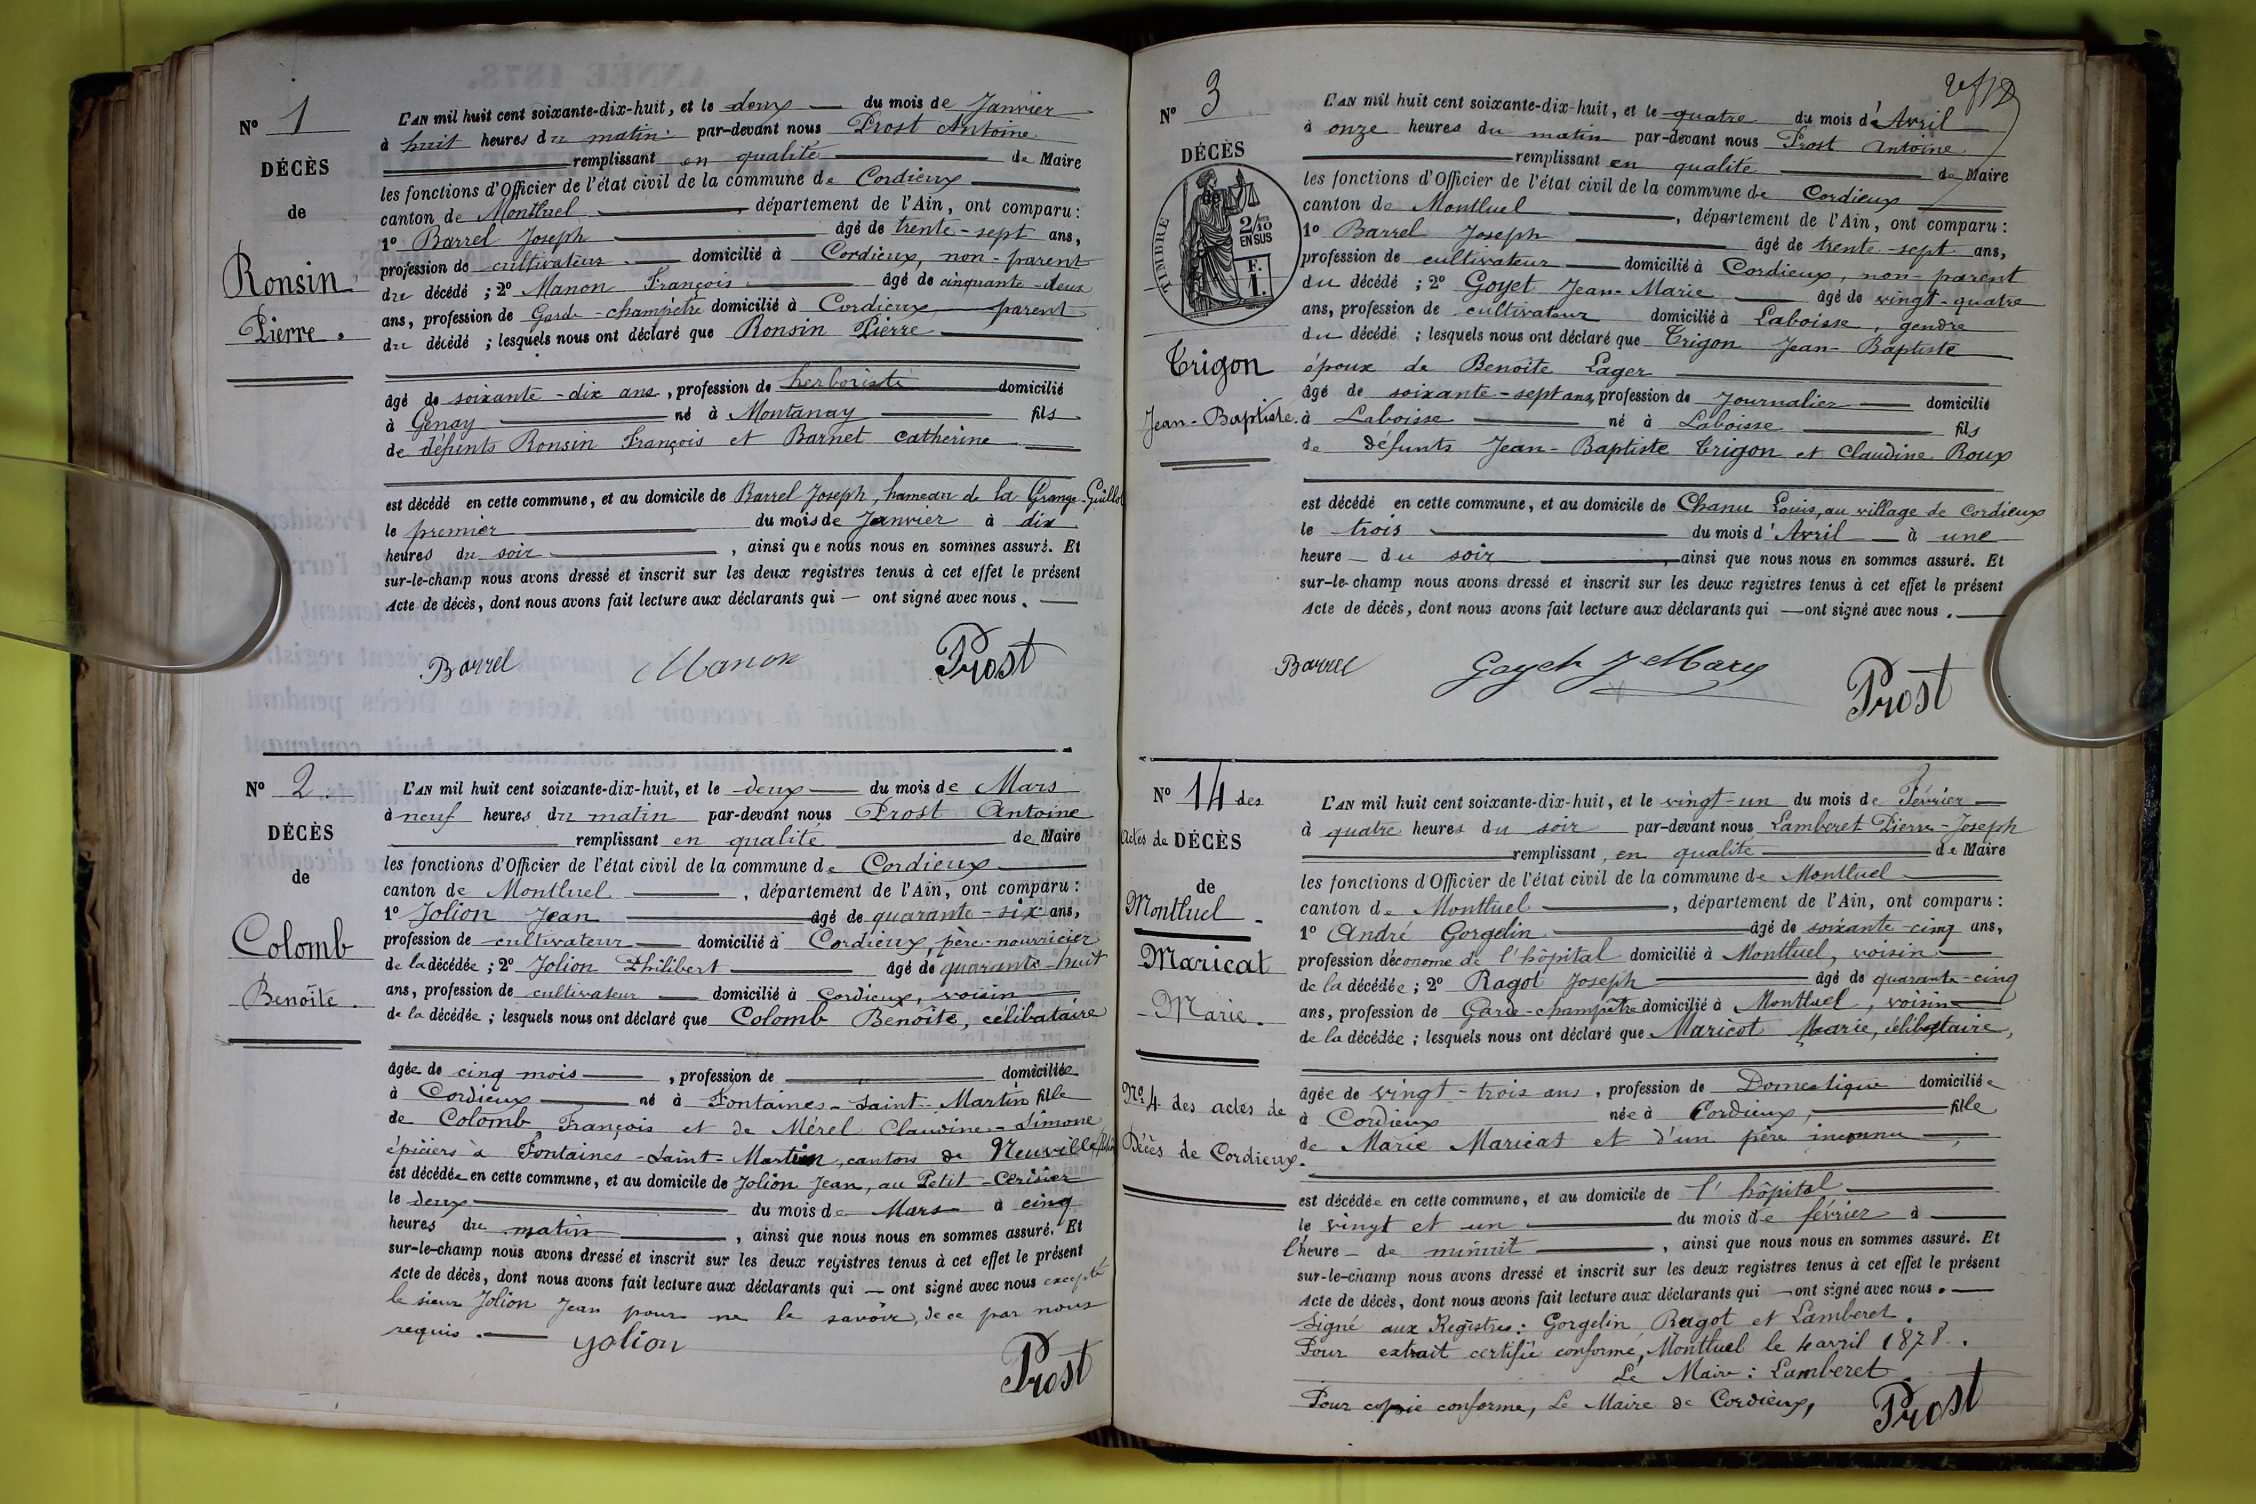 Nº 1
DÉCÈS
de
Ronsin
Pierre.
L'AN mil huit cent soixante-dix-huit, et le deux du mois de Janvier
à huit heures du matin par-devant nous Prost Antoine
remplissant en qualité de Maire
les fonctions d'Officier de l'état civil de la commune de Cordieux
canton de Montluel, département de l'Ain, ont comparu:
1º Barrel Joseph âgé de trente-sept ans,
profession de cultivateur domicilié à Cordieux, non-parent
du décédé; 2º Manon François âgé de cinquante-deux
ans, profession de Garde-champêtre domicilié à Cordieux parent
du décédé; lesquels nous ont déclaré que Ronsin Pierre
âgé de soixante-dix ans, profession de herboriste domicilié
à Genay né à Montanay fils
de défunts Ronsin François et Barnet catherine
est décédé en cette commune, et au domicile de Barrel Joseph, hameau de la Grange-Guillot
le premier du mois de Janvier à dix
heures du soir, ainsi que nous nous en sommes assuré. Et
sur-le-champ nous avons dressé et inscrit sur les deux registres tenus à cet effet le présent
Acte de décès, dont nous avons fait lecture aux déclarants qui — ont signé avec nous.
Barrel Manon Prost
Nº 2.
DÉCÈS
de
Colomb
Benoîte.
L'AN mil huit cent soixante-dix-huit, et le deux du mois de Mars
à neuf heures du matin par-devant nous Prost Antoine
remplissant en qualité de Maire
les fonctions d'Officier de l'état civil de la commune de Cordieux
canton de Montluel, département de l'Ain, ont comparu:
1º Jolion Jean âgé de quarante-six ans,
profession de cultivateur domicilié à Cordieux, père-nourricier
de la décédée; 2º Jolion Philibert âgé de quarante-huit
ans, profession de cultivateur domicilié à Cordieux, voisin
de la décédée; lesquels nous ont déclaré que Colomb Benoîte, célibataire
âgée de cinq mois, profession de domiciliée
à Cordieux né à Fontaines-Saint-Martin fille
de Colomb François et de Mérel Claudine-Simone
épiciers à Fontaines-Saint-Martin, canton de Neuville
est décédée en cette commune, et au domicile de Jolion Jean, au Petit-Cerisier
le deux du mois de Mars à cinq
heures du matin, ainsi que nous nous en sommes assuré. Et
sur-le-champ nous avons dressé et inscrit sur les deux registres tenus à cet effet le présent
Acte de décès, dont nous avons fait lecture aux déclarants qui — ont signé avec nous excepté
le sieur Jolion Jean pour ne le savoir, de ce par nous
requis.
Jolion
Prost
Nº 3
DÉCÈS
de
TIMBRE
2/10
EN SUS
F.
1.
Trigon
Jean-Baptiste.
L'AN mil huit cent soixante-dix-huit, et le quatre du mois d'Avril
à onze heures du matin par-devant nous Prost Antoine
remplissant en qualité de Maire
les fonctions d'Officier de l'état civil de la commune de Cordieux
canton de Montluel, département de l'Ain, ont comparu:
1º Barrel Joseph âgé de trente-sept ans,
profession de cultivateur domicilié à Cordieux, non-parent
du décédé; 2º Goyet Jean-Marie âgé de vingt-quatre
ans, profession de cultivateur domicilié à Laboisse, gendre
du décédé; lesquels nous ont déclaré que Trigon Jean-Baptiste
époux de Benoîte Lager
âgé de soixante-sept ans, profession de Journalier domicilié
à Laboisse né à Laboisse fils
de défunts Jean-Baptiste Trigon et Claudine Roux
est décédé en cette commune, et au domicile de Chanu Louis, au village de Cordieux
le trois du mois d'Avril à une
heure du soir, ainsi que nous nous en sommes assuré. Et
sur-le-champ nous avons dressé et inscrit sur les deux registres tenus à cet effet le présent
Acte de décès, dont nous avons fait lecture aux déclarants qui — ont signé avec nous.
Barrel Goyet J Mary Prost
Nº 14 des
actes de DÉCÈS
de
Montluel
Maricat
Marie.
Nº 4 des actes de
Décès de Cordieux.
L'AN mil huit cent soixante-dix-huit, et le vingt-un du mois de Février
à quatre heures du soir par-devant nous Lamberet Pierre-Joseph
remplissant, en qualité de Maire
les fonctions d'Officier de l'état civil de la commune de Montluel
canton de Montluel, département de l'Ain, ont comparu:
1º André Gorgelin âgé de soixante-cinq ans,
profession d'économe de l'hôpital domicilié à Montluel, voisin
de la décédée; 2º Ragot Joseph âgé de quarante-cinq
ans, profession de Garde-champêtre domicilié à Montluel, voisin
de la décédée; lesquels nous ont déclaré que Maricot Marie, célibataire,
âgée de vingt-trois ans, profession de Domestique domiciliée
à Cordieux née à Cordieux, fille
de Marie Maricat et d'un père inconnu,
est décédée en cette commune, et au domicile de l'hôpital
le vingt et un du mois de février à
l'heure de minuit, ainsi que nous nous en sommes assuré. Et
sur-le-champ nous avons dressé et inscrit sur les deux registres tenus à cet effet le présent
Acte de décès, dont nous avons fait lecture aux déclarants qui — ont signé avec nous.
Signé aux Registres: Gorgelin, Ragot et Lamberet.
Pour extrait certifié conforme, Montluel le 4 avril 1878.
Le Maire: Lamberet
Pour copie conforme, Le Maire de Cordieux,
Prost